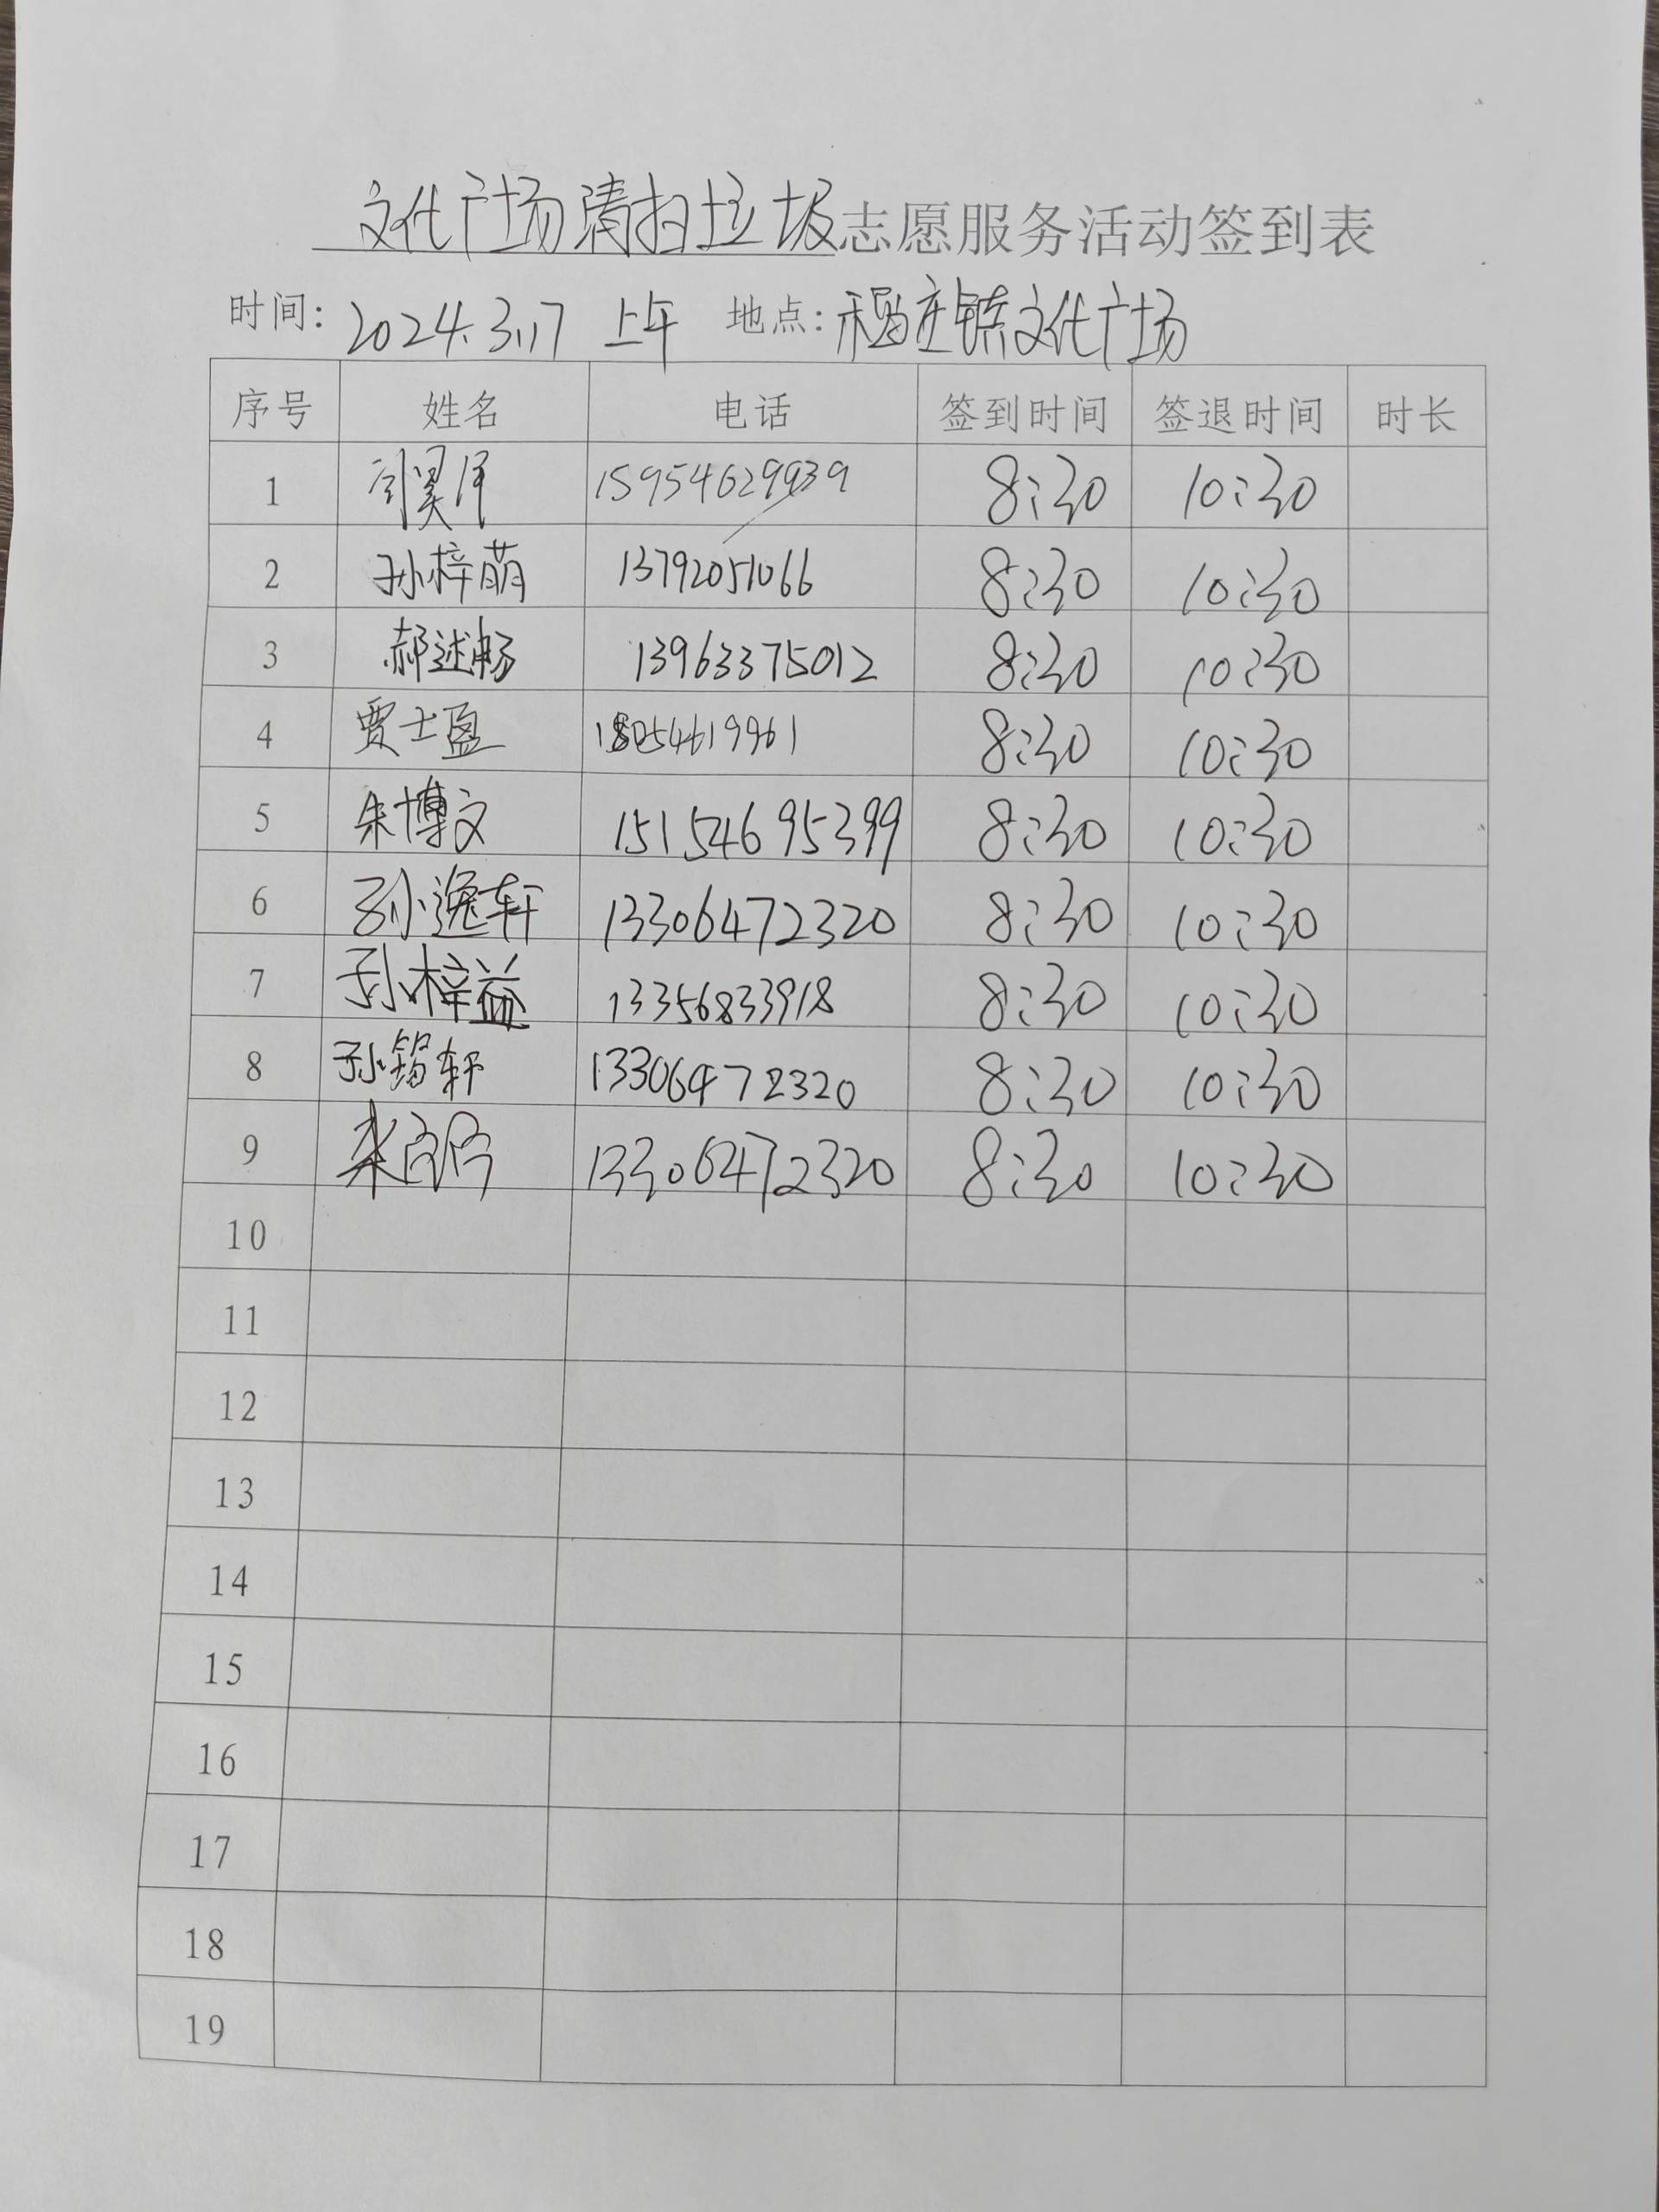 文化广场清扫垃圾志愿服务活动签到表
时间: 2024.3.17 上午 地点: 稻庄镇文化广场
序号 姓名 电话 签到时间 签退时间 时长
1 15954629939 8:30 10:30
2 孙梓萌 13792051066 8:30 10:30
3 郝述畅 13963375012 8:30 10:30
4 贾士盈 18054619961 8:30 10:30
5 朱博文 15154695399 8:30 10:30
6 孙逸轩 13306472320 8:30 10:30
7 孙梓益 13356833918 8:30 10:30
8 孙筠轩 13306472320 8:30 10:30
9 13306472320 8:30 10:30
10
11
12
13
14
15
16
17
18
19